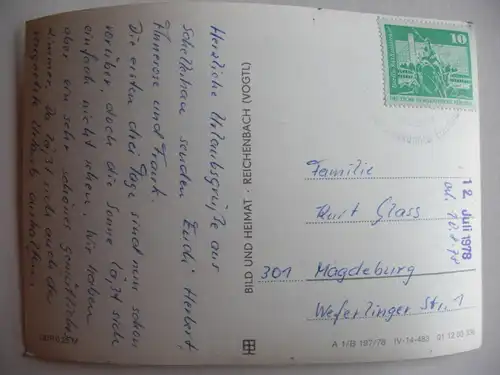 Herzliche Urlaubsgrüße aus
Schellerhau senden Euch: Herbert,
Annerose und Frank.
Die ersten drei Tage sind nun schon
vorüber, doch die Sonne läßt sich
einfach nicht sehen. Wir haben
aber ein sehr schönes gemütliches
Zimmer, da läßt sich auch der
verregnete Urlaub aushalten.
BILD UND HEIMAT · REICHENBACH (VOGTL)
10
12. Juli 1978
Familie
Kurt Glass
301 Magdeburg
Weferlinger Str. 1
A 1/B 197/78 IV-14-483 01 12 03 336